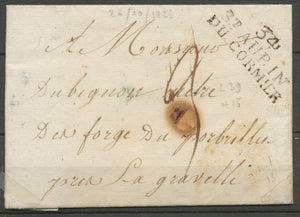 26/10/1828
34
ST AUBIN
DU CORMIER
A Monsieur
Dubignon maitre
Des forge Du porbrillet
près La gravelle